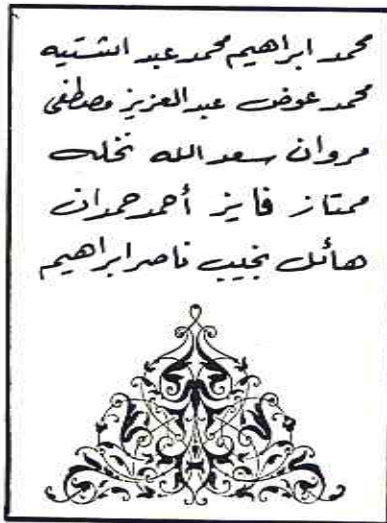 محمد ابراهيم محمد عبد اشتيه
محمد عوض عبد العزيز مصطفى
مروان سعد الله نخله
ممتاز فايز أحمد حمدان
هائل نجيب ناصر ابراهيم